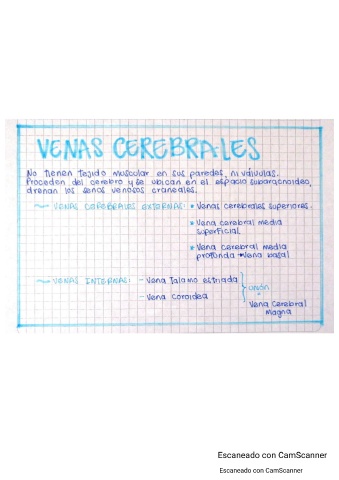 VENAS CEREBRALES
No tienen tejido muscular en sus paredes, ni válvulas.
Proceden del cerebro y se ubican en el espacio subaracnoideo,
drenan los senos venosos craneales.
VENAS CEREBRALES EXTERNAS: • Venas cerebrales superiores.
• Vena cerebral media
superficial
• Vena cerebral media
profunda → Vena basal
VENAS INTERNAS: - Vena Talamo estriada
unión
- Vena Coroidea
Vena Cerebral
Magna
Escaneado con CamScanner
Escaneado con CamScanner